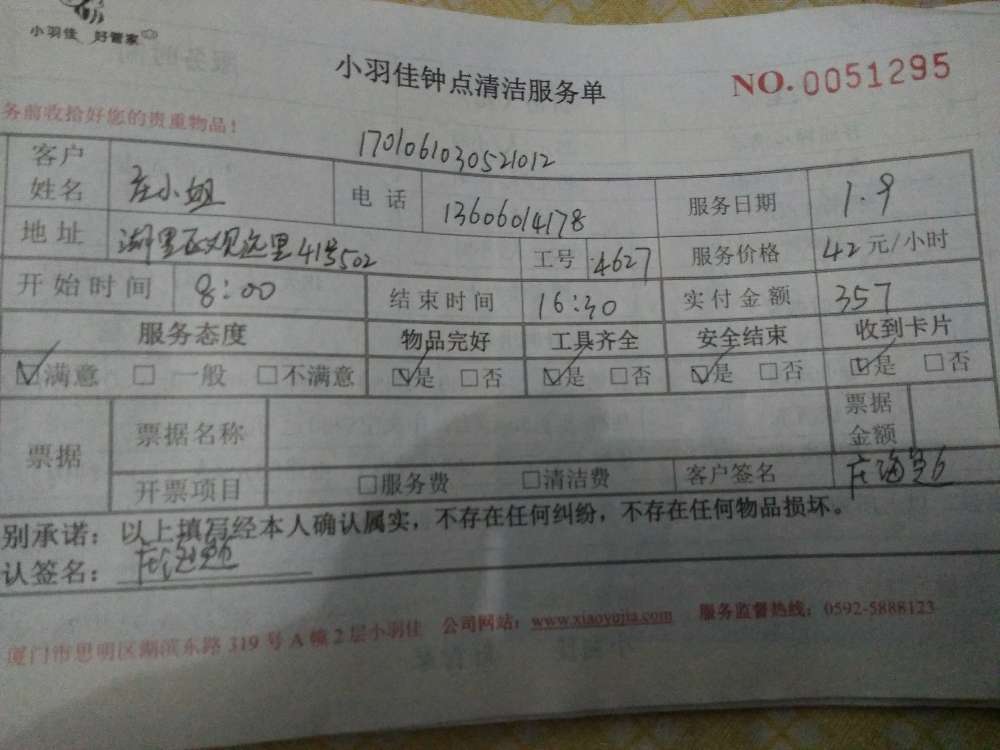 小羽佳 好管家
小羽佳钟点清洁服务单
NO. 0051295
务前收拾好您的贵重物品！
1701061030521012
客户姓名 庄小姐 电话 13606014178 服务日期 1.9
地址 湖里区观远里41号502 工号 4627 服务价格 42元/小时
开始时间 8:00 结束时间 16:30 实付金额 357
服务态度 物品完好 工具齐全 安全结束 收到卡片
☑满意 □一般 □不满意 ☑是 □否 ☑是 □否 ☑是 □否 ☑是 □否
票据 票据名称 票据金额
开票项目 □服务费 □清洁费 客户签名
别承诺：以上填写经本人确认属实，不存在任何纠纷，不存在任何物品损坏。
认签名：
厦门市思明区湖滨东路319号A幢2层小羽佳 公司网站：www.xiaoyujia.com 服务监督热线：0592-5888123